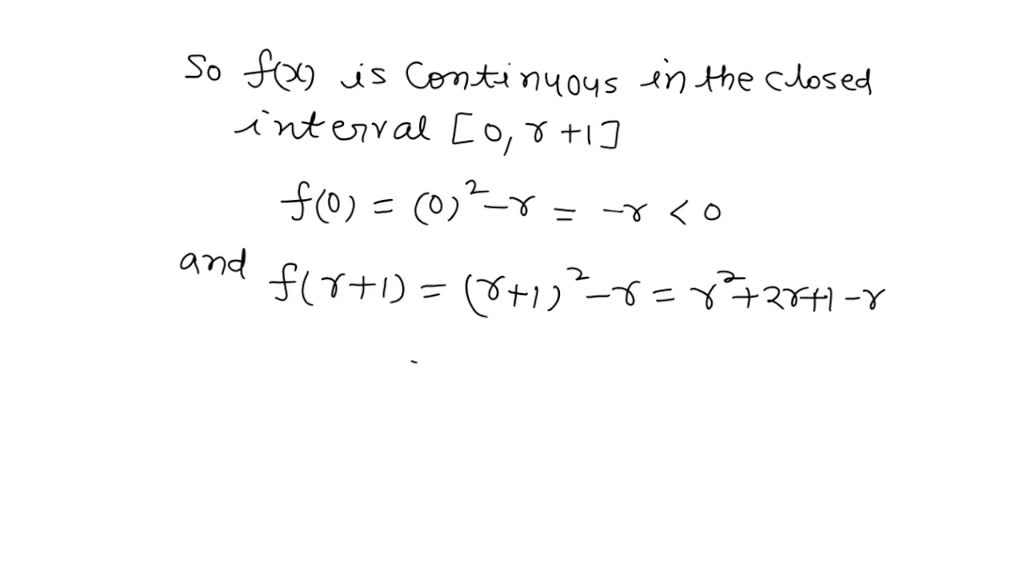 So f(x) is continuous in the closed
interval [0, r+1]
f(0) = (0)² - r = -r < 0
and f(r+1) = (r+1)² - r = r² + 2r + 1 - r